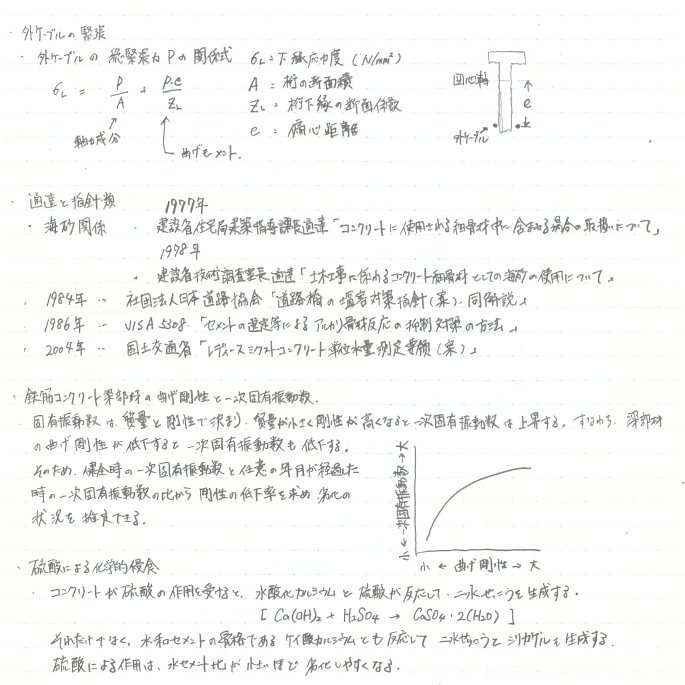 ・外ケーブルの緊張
・外ケーブルの総緊張力Pの関係式 σL:下縁応力度(N/mm²)
σL = P/A + P・e/ZL A:桁の断面積
ZL:桁下縁の断面係数
e:偏心距離
軸力成分
曲げモーメント.
図心軸
e
外ケーブル
・通達と指針類 1977年
・海砂関係 ・建設省住宅局建築指導課長通達「コンクリートに使用される細骨材中に含まれる場合の取扱について」
1978年
・建設省技術調査室長通達「土木工事に係わるコンクリート細骨材としての海砂の使用について」
・1984年 ‥ 社団法人日本道路協会「道路橋の塩害対策指針(案)同解説」
・1986年 ‥ JIS A 5308.「セメントの選定等によるアルカリ骨材反応の抑制対策の方法」
・2004年 ‥ 国土交通省「レディーミクストコンクリート単位水量測定要領(案)」
・鉄筋コンクリート梁部材の曲げ剛性と一次固有振動数.
・固有振動数は質量と剛性で決まり、質量が小さく剛性が高くなると一次固有振動数は上昇する. すなわち、梁部材
の曲げ剛性が低下すると一次固有振動数も低下する.
そのため、健全時の一次固有振動数と任意の年月が経過した
時の一次固有振動数の比から剛性の低下率を求め劣化の
状況を推定できる.
小 ← 一次固有振動数 → 大
小 ← 曲げ剛性 → 大
・硫酸による化学的侵食
・コンクリートが硫酸の作用を受けると、水酸化カルシウムと硫酸が反応して、二水せっこうを生成する.
[ Ca(OH)₂ + H₂SO₄ → CaSO₄・2(H₂O) ]
それだけでなく、水和セメントの骨格であるケイ酸カルシウムとも反応して二水せっこうとシリカゲルを生成する.
硫酸による作用は、水セメント比が小さいほど劣化しやすくなる.